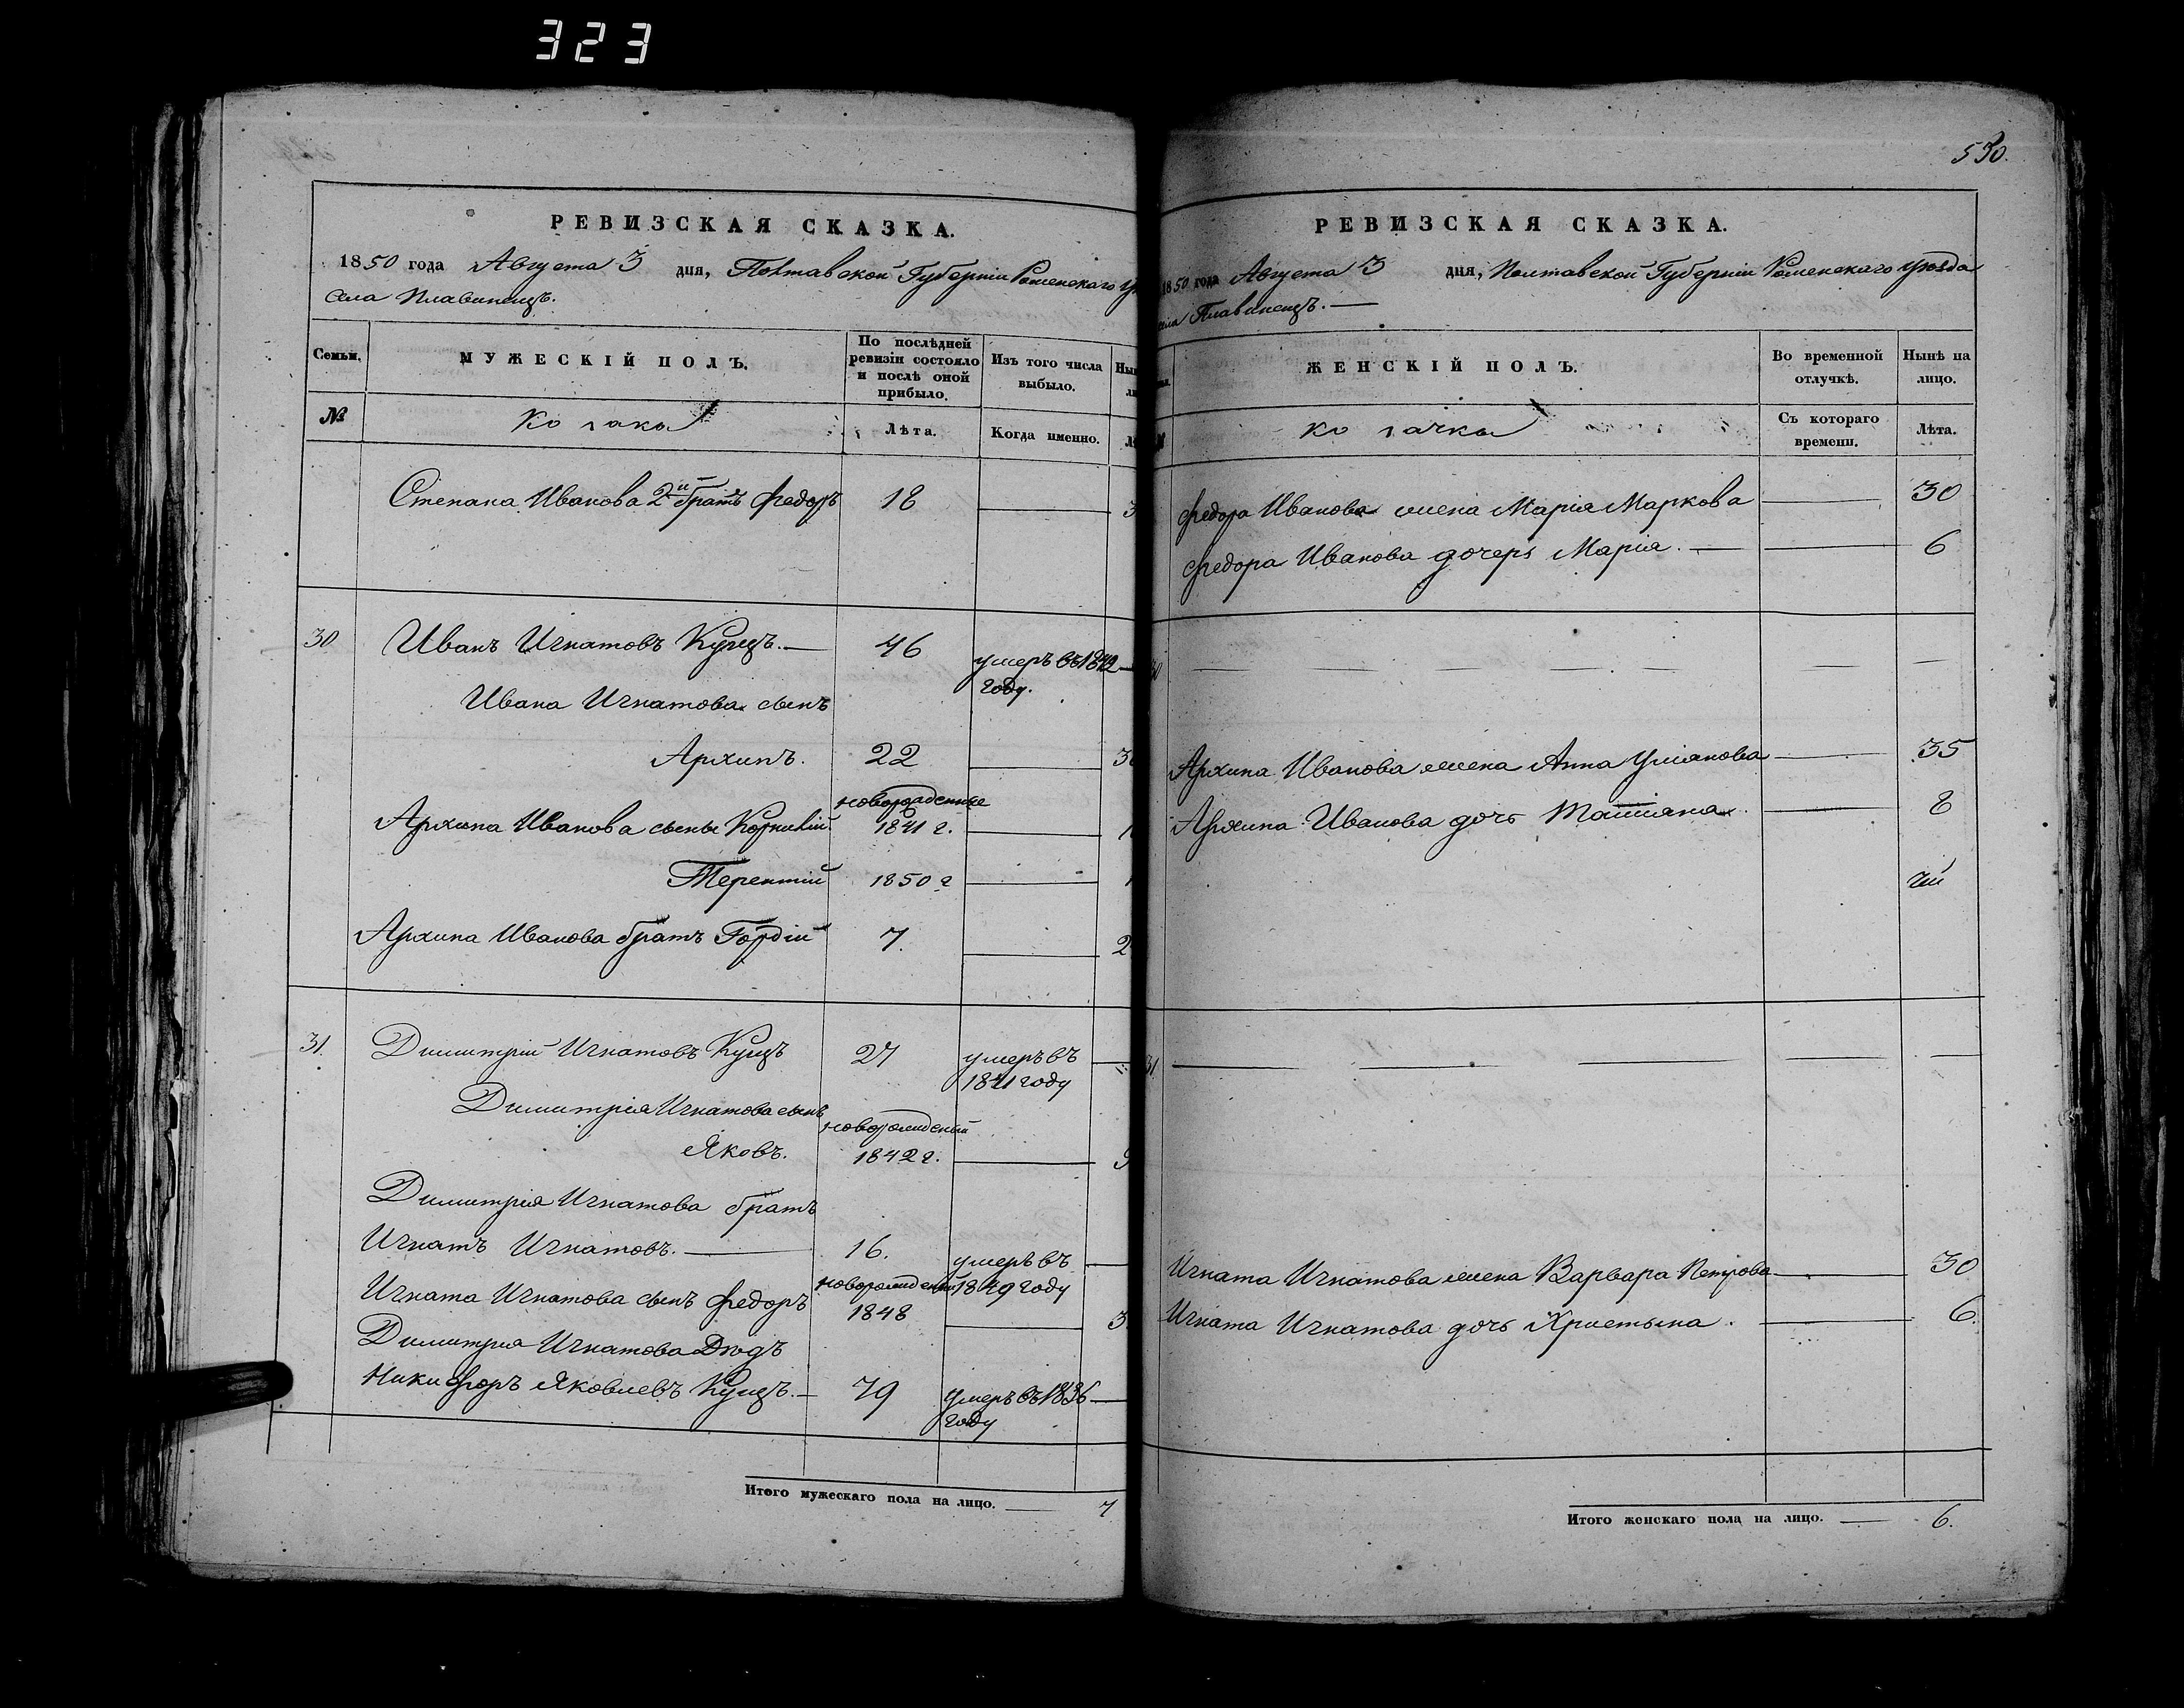 323
РЕВИЗСКАЯ СКАЗКА.
1850 года Августа 3 дня, Полтавской Губерніи Роменскаго
села Плавинищъ.
Семьи. МУЖЕСКІЙ ПОЛЪ. По послѣдней ревизіи состояло и послѣ оной прибыло. Изъ того числа выбыло.
№ Козаки Лѣта. Когда именно.
Степана Иванова 2й братъ Федоръ 18
30 Иванъ Игнатовъ Куцъ. 46 умеръ въ 1842
году.
Ивана Игнатова сынъ
Архипъ. 22
новорожденные
Архипа Иванова сыны Корнилій 1841 г.
Терентій 1850 г
Архипа Иванова братъ Гордій 7.
31. Димитрій Игнатовъ Куцъ 27 умеръ въ
1841 году
Димитрія Игнатова сынъ
новорожденый
Яковъ. 1842 г.
Димитрія Игнатова братъ
Игнатъ Игнатовъ. 16. умеръ въ
1849 году
Игната Игнатова сынъ Федоръ новорожденый
1848
Димитрия Игнатова Дѣдъ
Никифоръ Яковлевъ Куцъ. 79 Умеръ въ 1836
году
Итого мужескаго пола на лицо. 7
530.
РЕВИЗСКАЯ СКАЗКА.
1850 года Августа 3 дня, Полтавской Губерніи Роменскаго уѣзда
села Плавинищъ.
ЖЕНСКІЙ ПОЛЪ. Во временной отлучкѣ. Нынѣ на лицо.
козачки Съ котораго времени. Лѣта.
Федора Иванова жена Марія Маркова 30
Федора Иванова дочерь Марія. 6
30
Архипа Иванова жена Анна Ульянова 35
Архипа Иванова дочь Татіяна. 8
31.
Игната Игнатова жена Варвара Петрова 30
Игната Игнатова дочь Христына. 6.
Итого женскаго пола на лицо. 6.